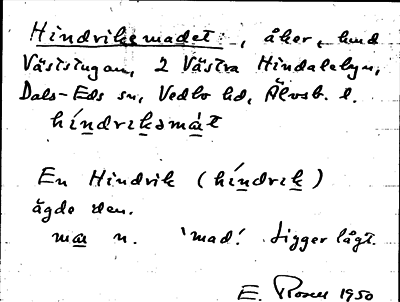 Hindriksmadet, åker, hmd
Väststugan, 2 Västra Hindalebyn,
Dals-Eds sn, Vedbo hd, Älvsb. l.
híndriksmàt
En Hindrik (híndrik)
ägde den.
ma n. 'mad'. Ligger lågt.
E. Rosell 1950